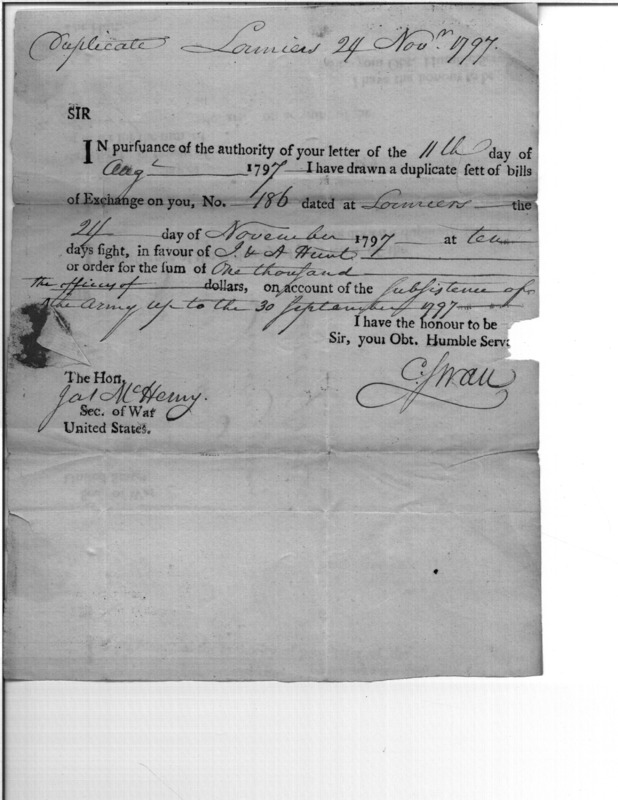 Duplicate Lamiers 24 Novr. 1797.
SIR
IN pursuance of the authority of your letter of the 11th day of
Augt 1797 I have drawn a duplicate sett of bills
of Exchange on you, No. 186 dated at Lamiers the
24 day of November 1797 at ten
days sight, in favour of J. & A Hunt
or order for the sum of One thousand
dollars, on account of the Subsistence of
the officers of
the Army up to the 30 September 1797
I have the honour to be
Sir, your Obt. Humble Serv
C. Swan
The Hon.
Jas McHenry.
Sec. of War
United States.